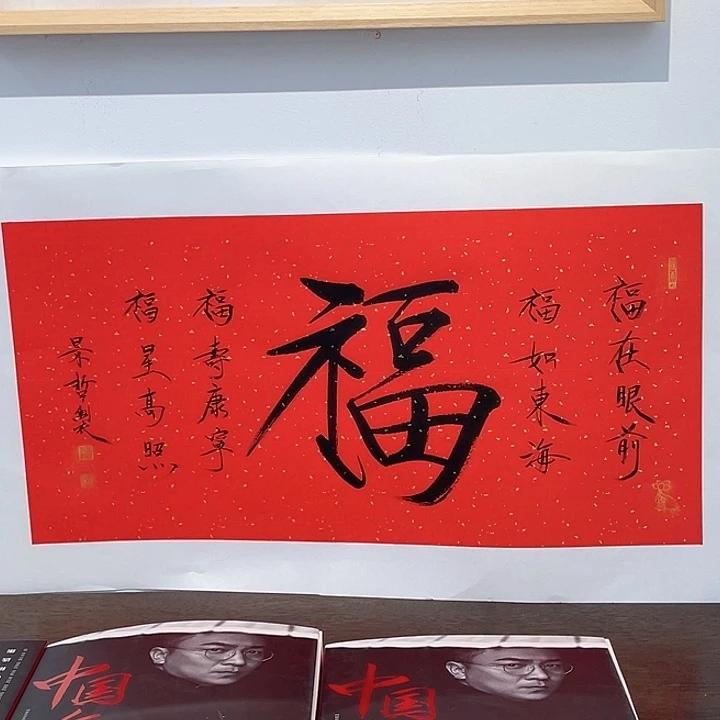 福在眼前
福如東海
福
福壽康寧
福星高照
中国
中国